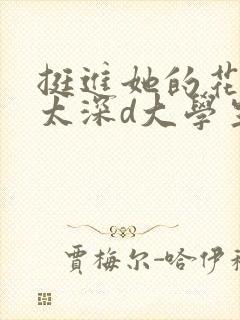 挺進她的花
太深d大學生
賈梅尔-哈伊裡